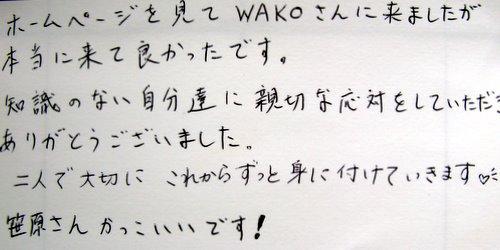 ホームページを見て WAKOさんに来ましたが
本当に来て良かったです。
知識のない自分達に親切な応対をしていただき
ありがとうございました。
二人で大切に これからずっと身に付けていきます♡
笹原さんかっこいいです！